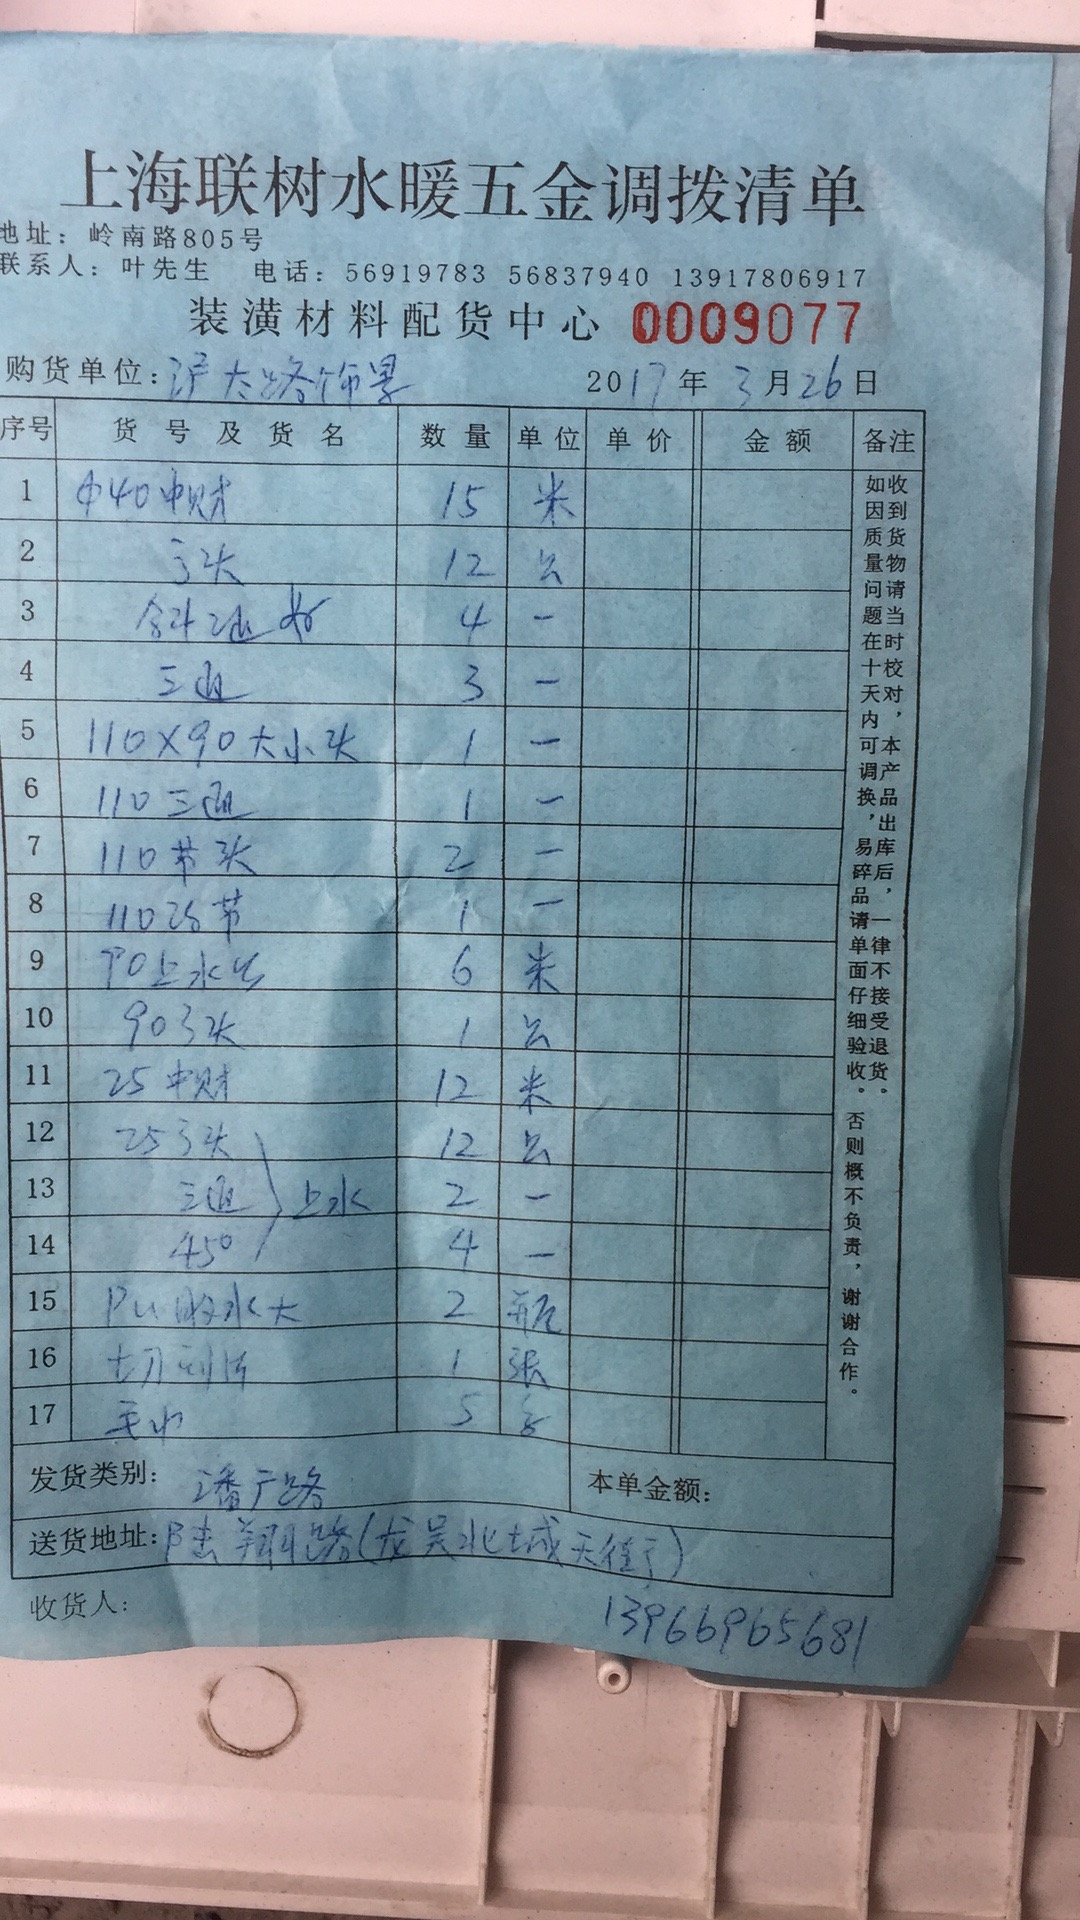 上海联树水暖五金调拨清单
地址：岭南路805号
联系人：叶先生 电话：56919783 56837940 13917806917
装潢材料配货中心 0009077
购货单位：沪太路饰景 2017年3月26日
序号 货号及货名 数量 单位 单价 金额 备注
1 Φ40中财 15 米
2 弯头 12 公
3 斜三通 4 一
4 三通 3 一
5 110X90大小头 1 一
6 110三通 1 一
7 110节头 2 一
8 110 节 1 一
9 90上水 6 米
10 90弯头 1 公
11 25中财 12 米
12 25弯头 12 公
13 三通 上水 2 一
14 45° 4 一
15 PU胶水大 2 瓶
16 切割片 1 张
17 毛巾 5 条
收到货物请当时校对，本产品出库后，一律不接受退货。
如因质量问题在十天内可调换，易碎品请单面仔细验收。否则概不负责，谢谢合作。
发货类别：潘广路 本单金额：
送货地址：陆翔路(龙吴北城天街)
收货人： 13966965681